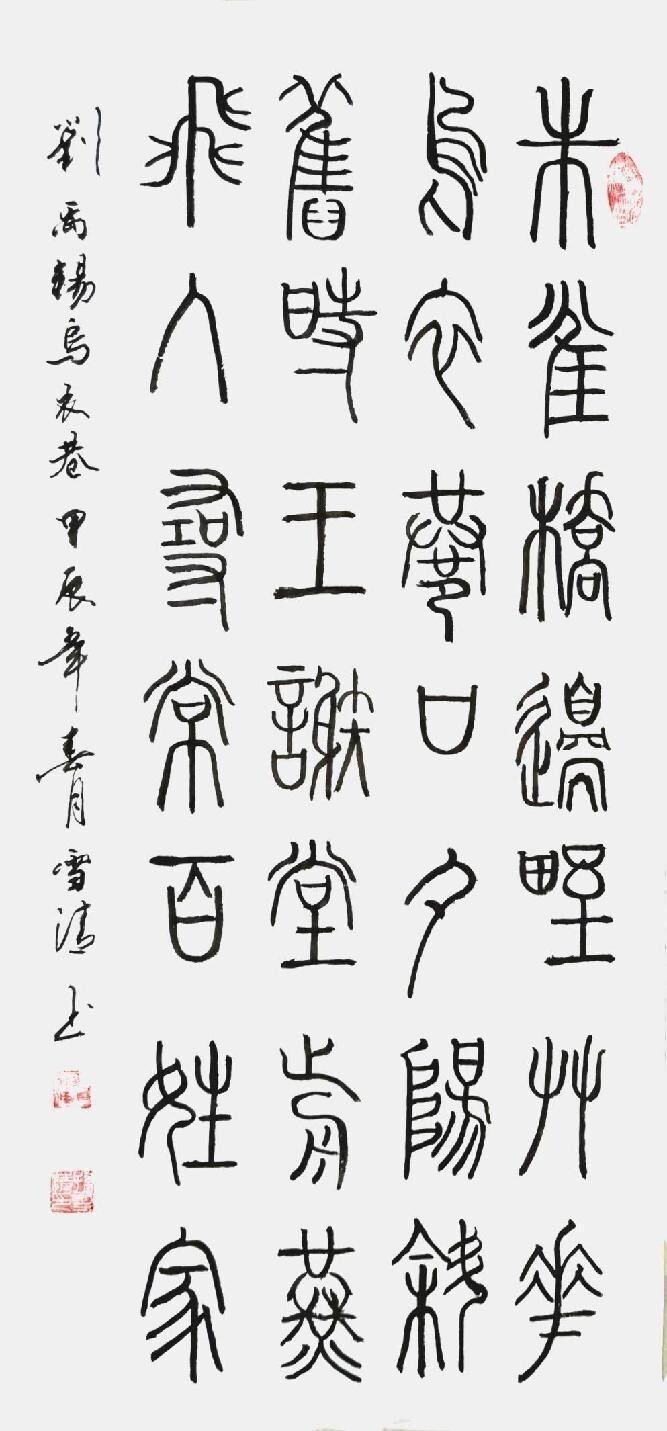 朱雀橋邊野艸花
烏衣巷口夕陽斜
舊時王謝堂前燕
飛入尋常百姓家
劉禹錫烏衣巷甲辰年春月雪清书